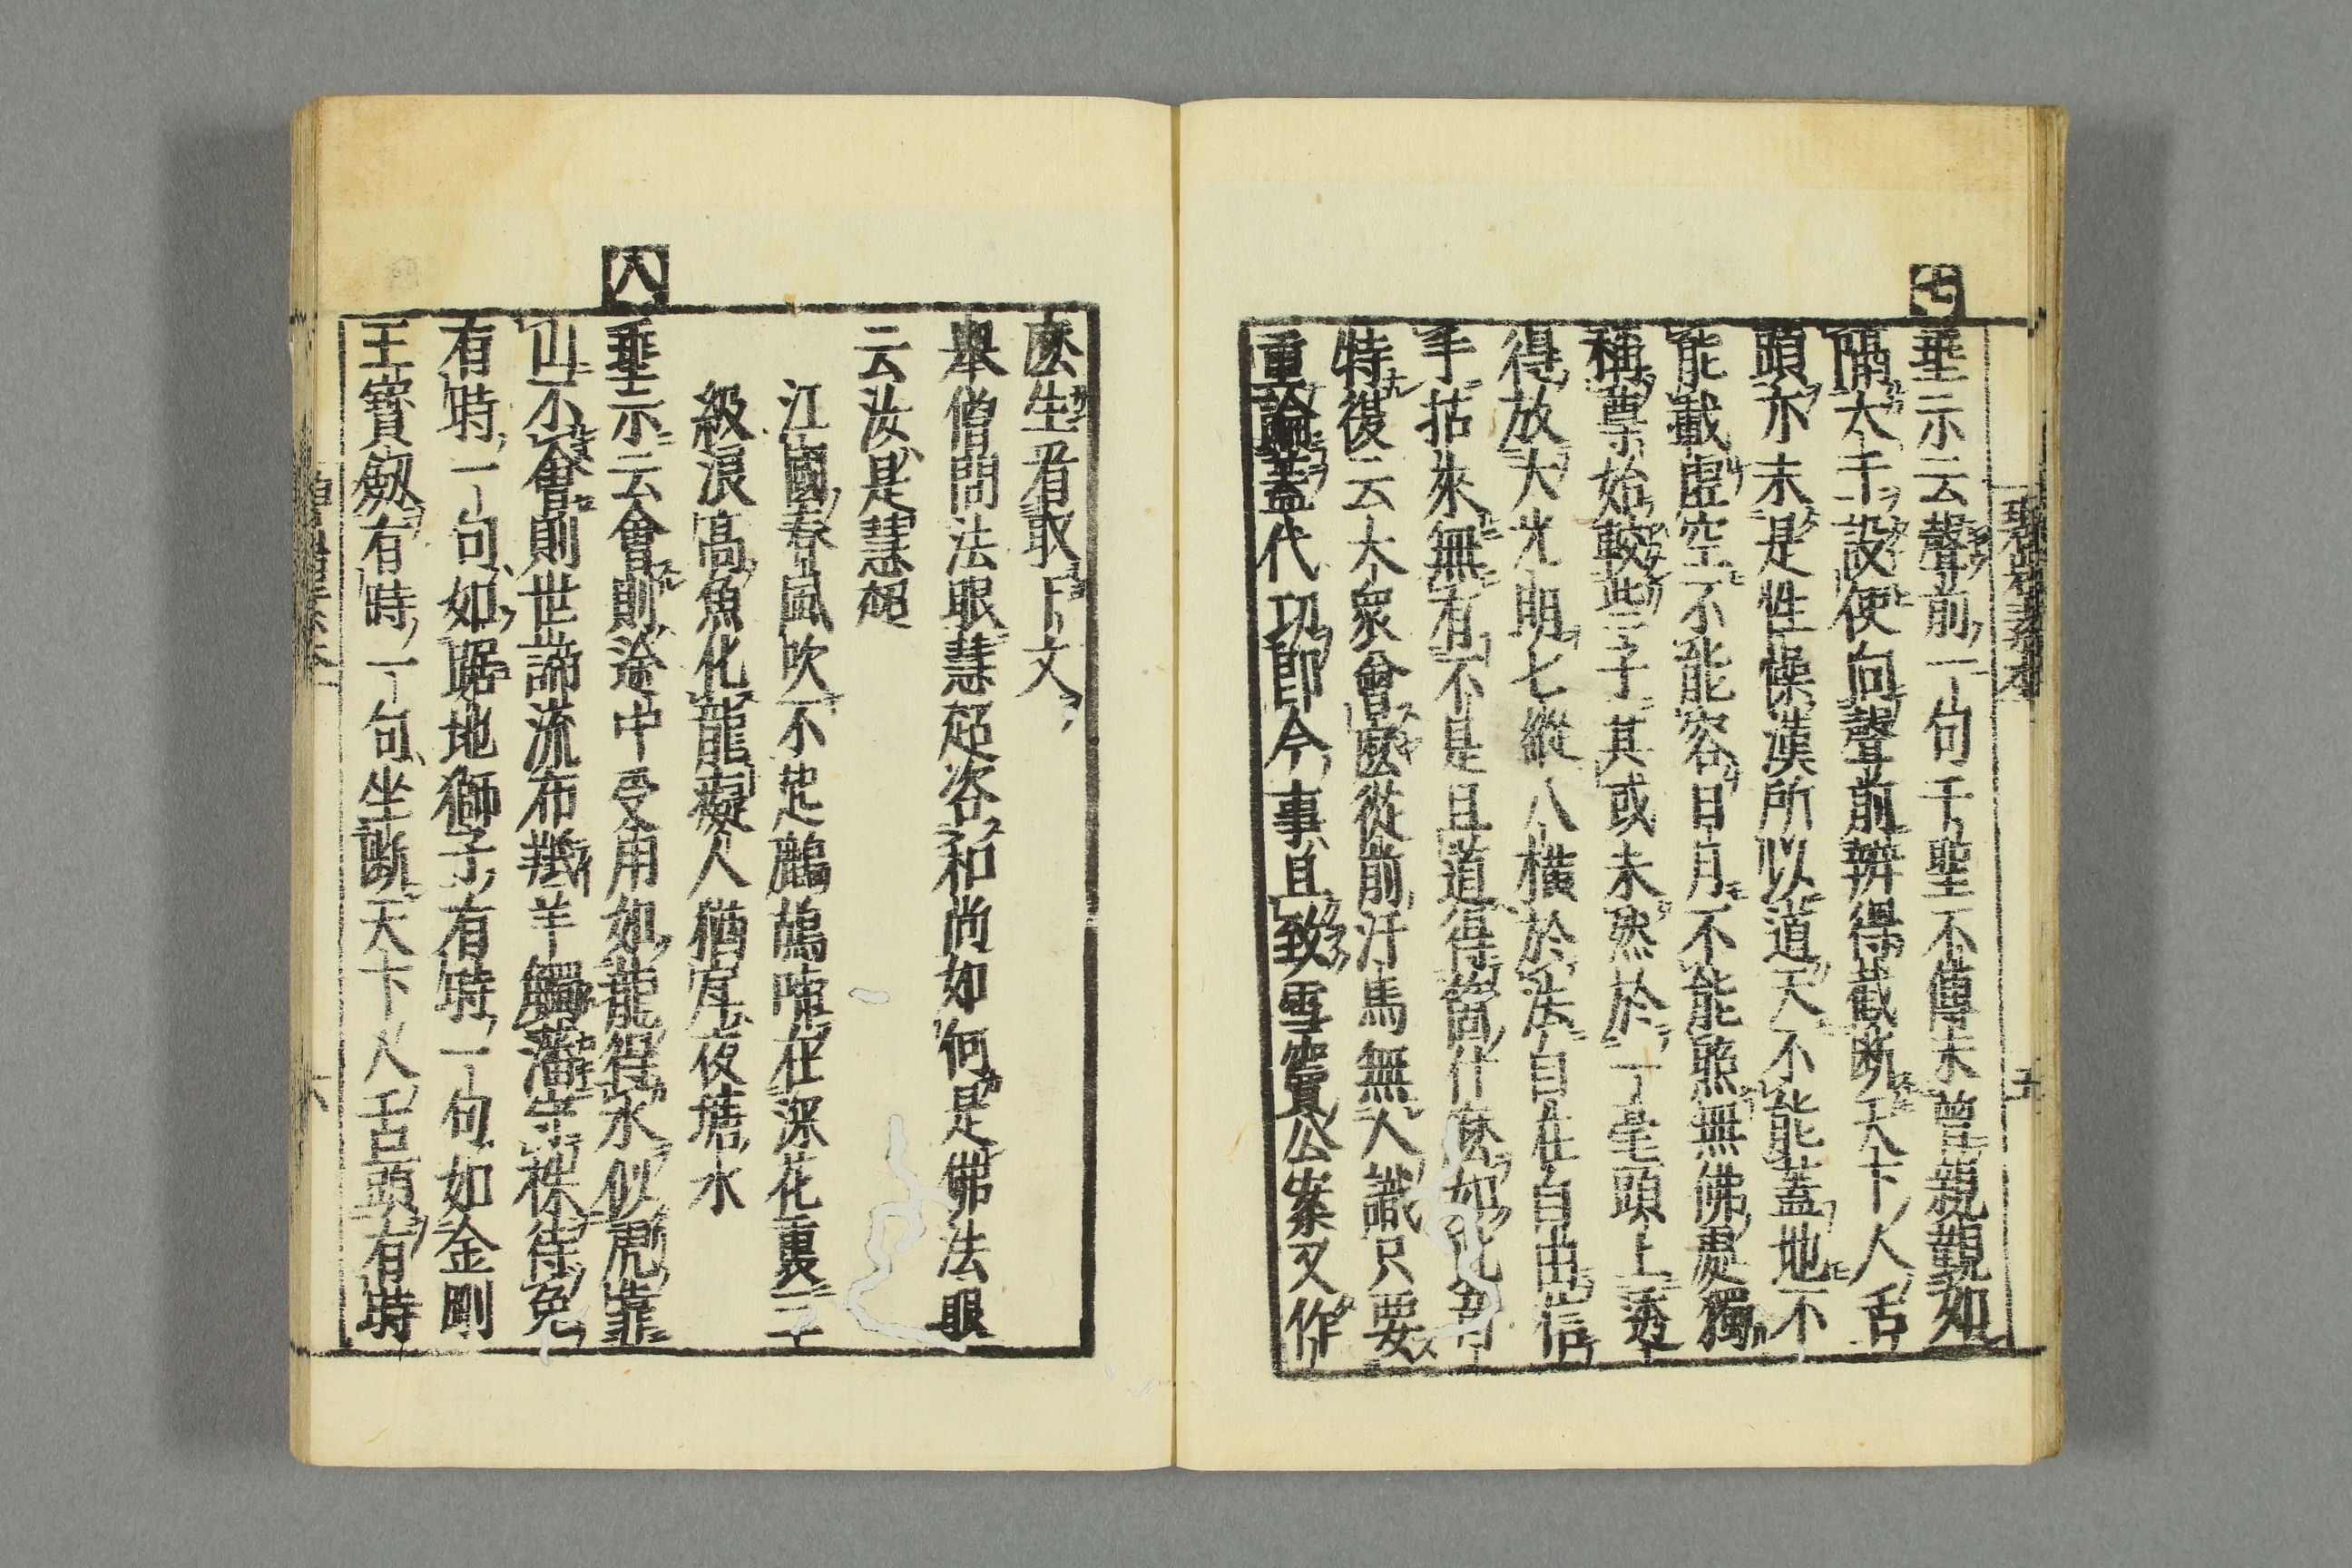 七
垂示云聲前一句千聖不傳未曾親覲如
隔大千設便向聲前辨得截斷天下人舌
頭亦未是性懆漢所以道天不能蓋地不
能載虛空不能容日月不能照無佛處獨
稱尊始較些子其或未然於一毫頭上透
得放大光明七縱八橫於法自在自由信
手拈來無有不是且道得箇什麼如此奇
特復云大衆會麼從前汗馬無人識只要
重論蓋代功即今事且致雪竇公案又作
麼生看取下文
舉僧問法眼慧超咨和尚如何是佛法眼
云汝是慧超
江國春風吹不起鷓鴣啼在深花裏三
級浪高魚化龍癡人猶戽夜塘水
八
垂示云會則途中受用如龍得水似虎靠
山不會則世諦流布羝羊觸藩守株待兔
有時一句如踞地獅子有時一句如金剛
王寶劔有時一句坐斷天下人舌頭有時